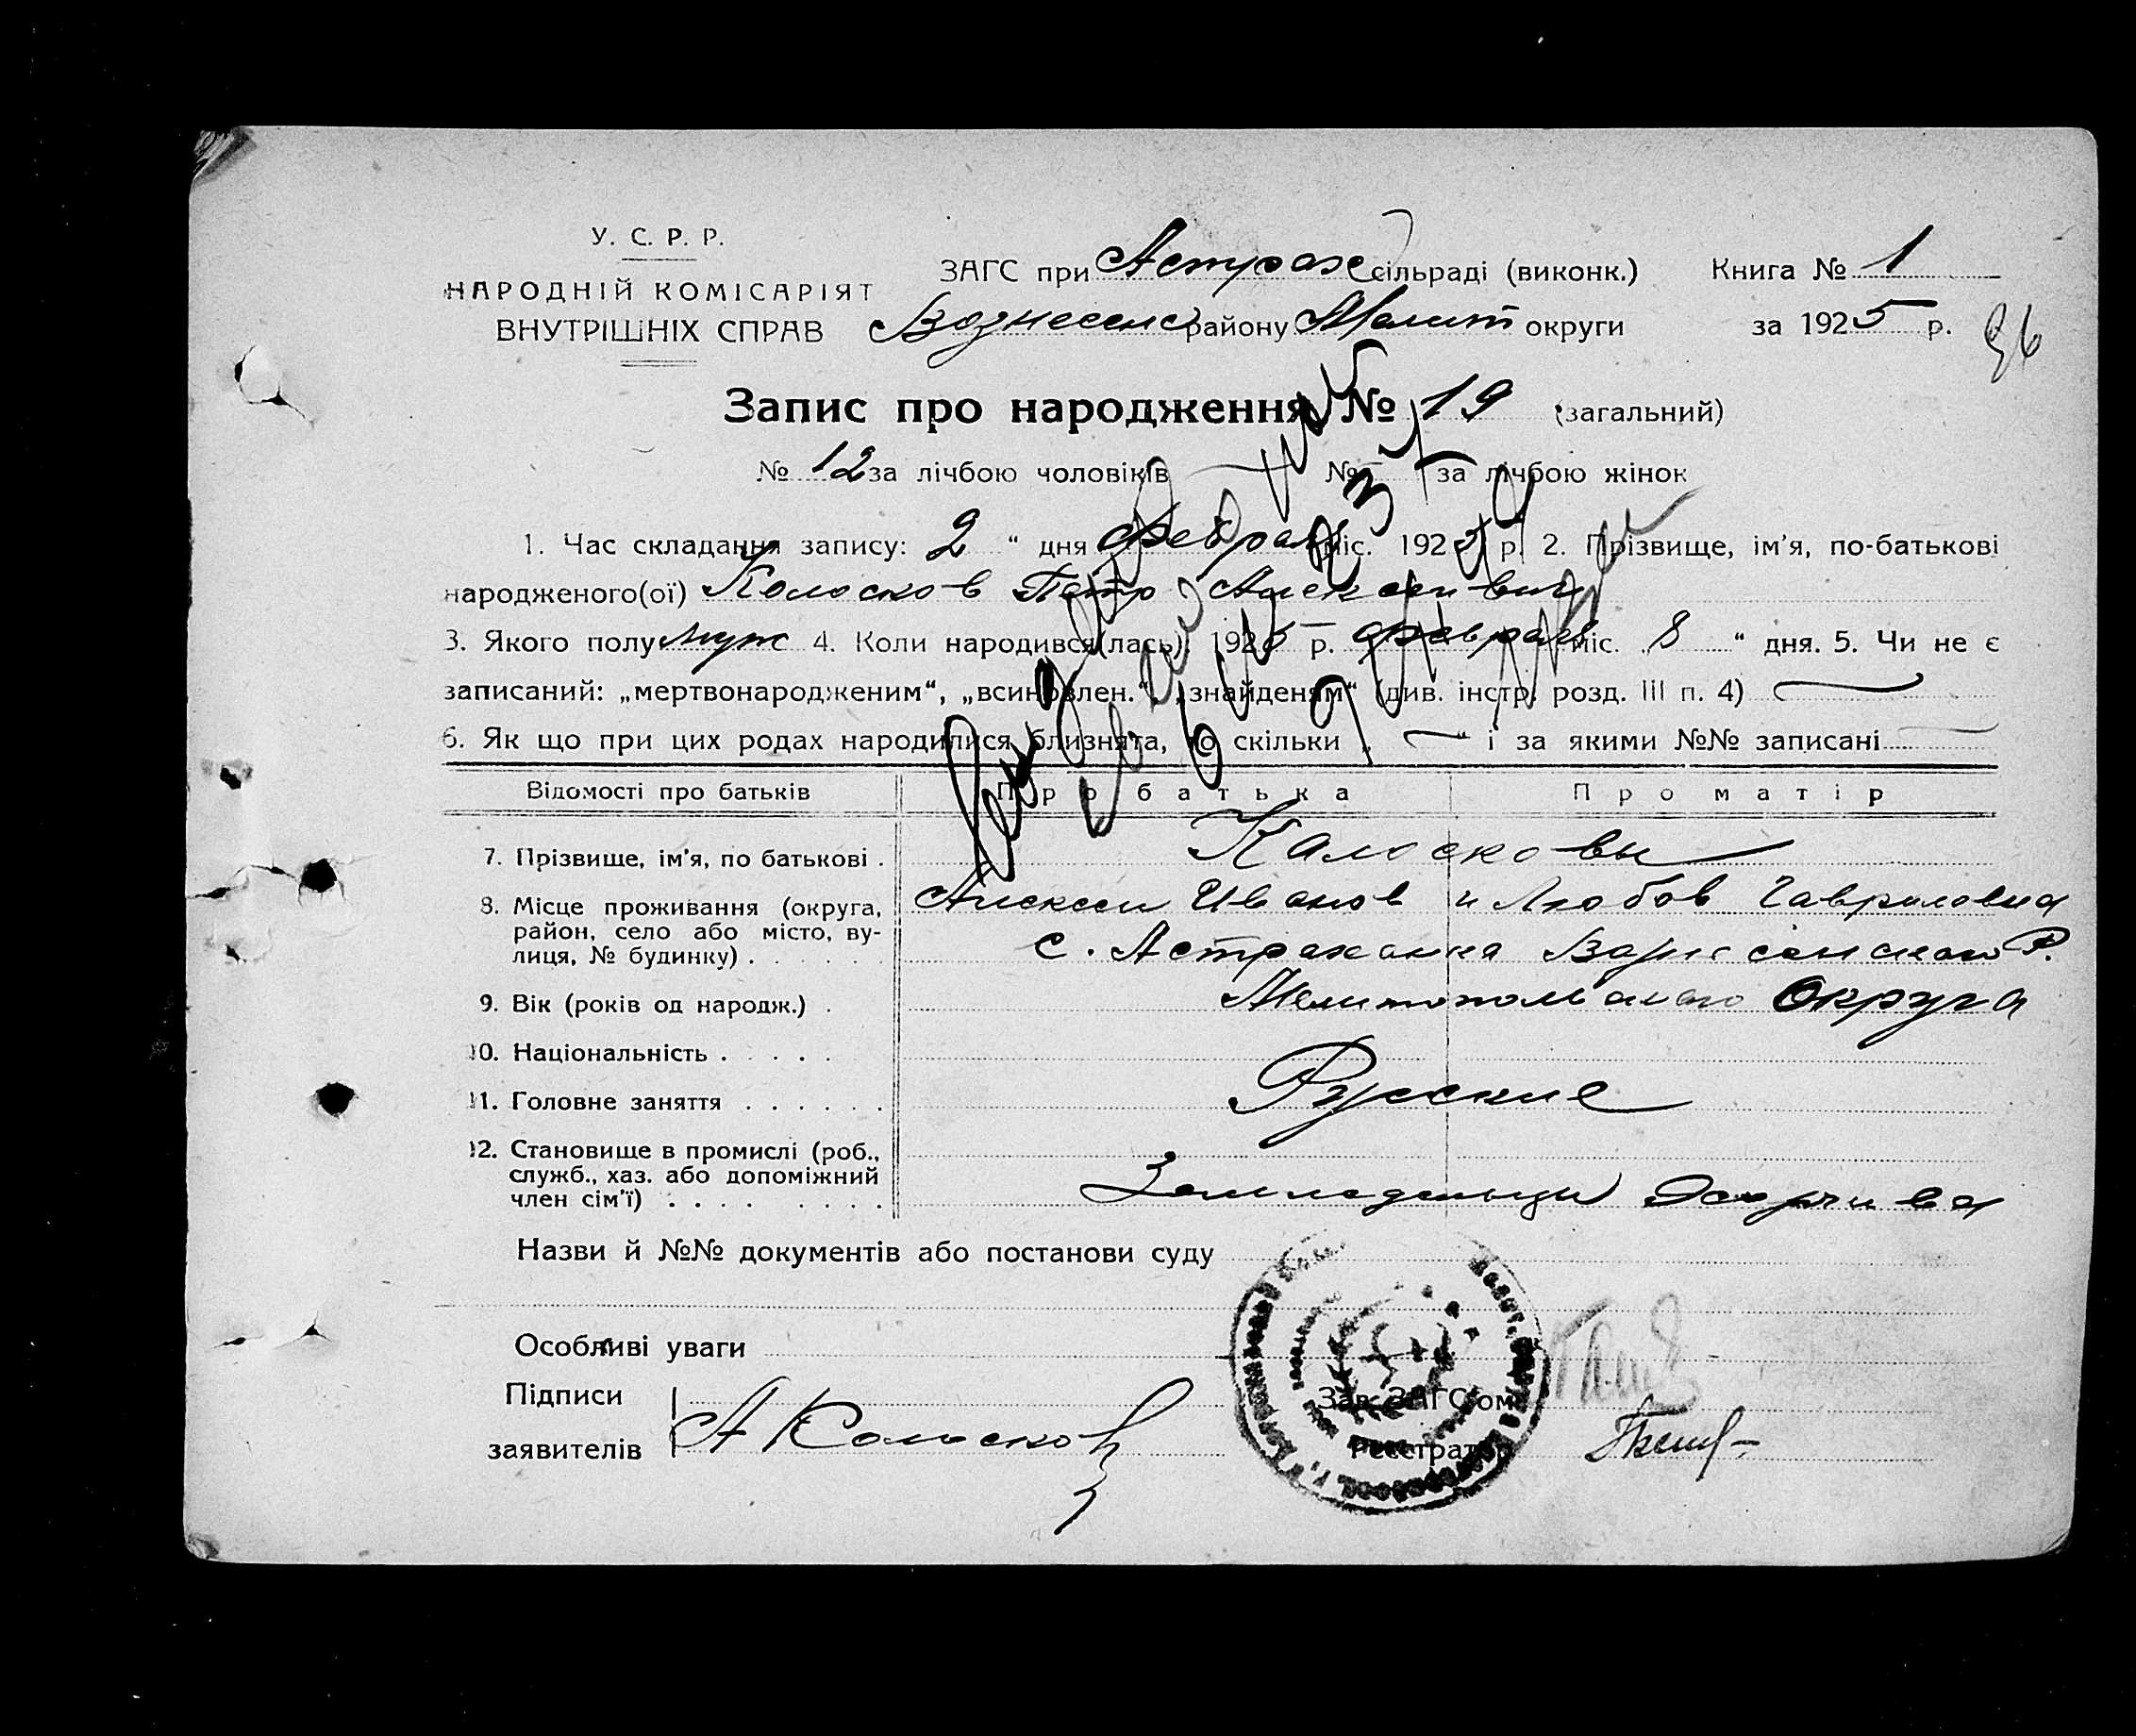 У. С. Р. Р.
НАРОДНІЙ КОМІСАРІЯТ
ВНУТРІШНІХ СПРАВ
ЗАГС при Астрахс сільраді (виконк.) Книга № 1
Вознесенс району Мелит округи за 1925 р.
36
Запис про народження № 19 (загальний)
№ 12 за лічбою чоловіків № — за лічбою жінок
1. Час складання запису: 2 “ дня феврал міс. 192 р. 2. Прізвище, ім'я, по-батькові
народженого(ої) Колосков Петр Алексеивич
3. Якого полу муж 4. Коли народився(лась): 1925 р. феврал міс. 8 “ дня. 5. Чи не є
записаний: „мертвонародженим“, „всиновлен.“ „знайденям“ (див. інстр. розд. III п. 4) —
6. Як що при цих родах народилися близнята, то скільки „ — “ і за якими №№ записані
Відомості про батьків Про батька Про матір
7. Прізвище, ім'я, по батькові . Калосковы
8. Місце проживання (округа, район, село або місто, вулиця, № будинку) . Алексеи Иванов и Любов Гавриловна
с. Астраханка Р.
9. Вік (років од народж.) . Мелитопольского Округа
10. Національність .
11. Головне заняття . Русские
12. Становище в промислі (роб., служб., хаз. або допоміжний член сім'ї) . Земледельцы
Назви й №№ документів або постанови суду
Особливі уваги
Підписи
заявителів А Колосков
Зав. ЗАГС'ом
Реєстратор